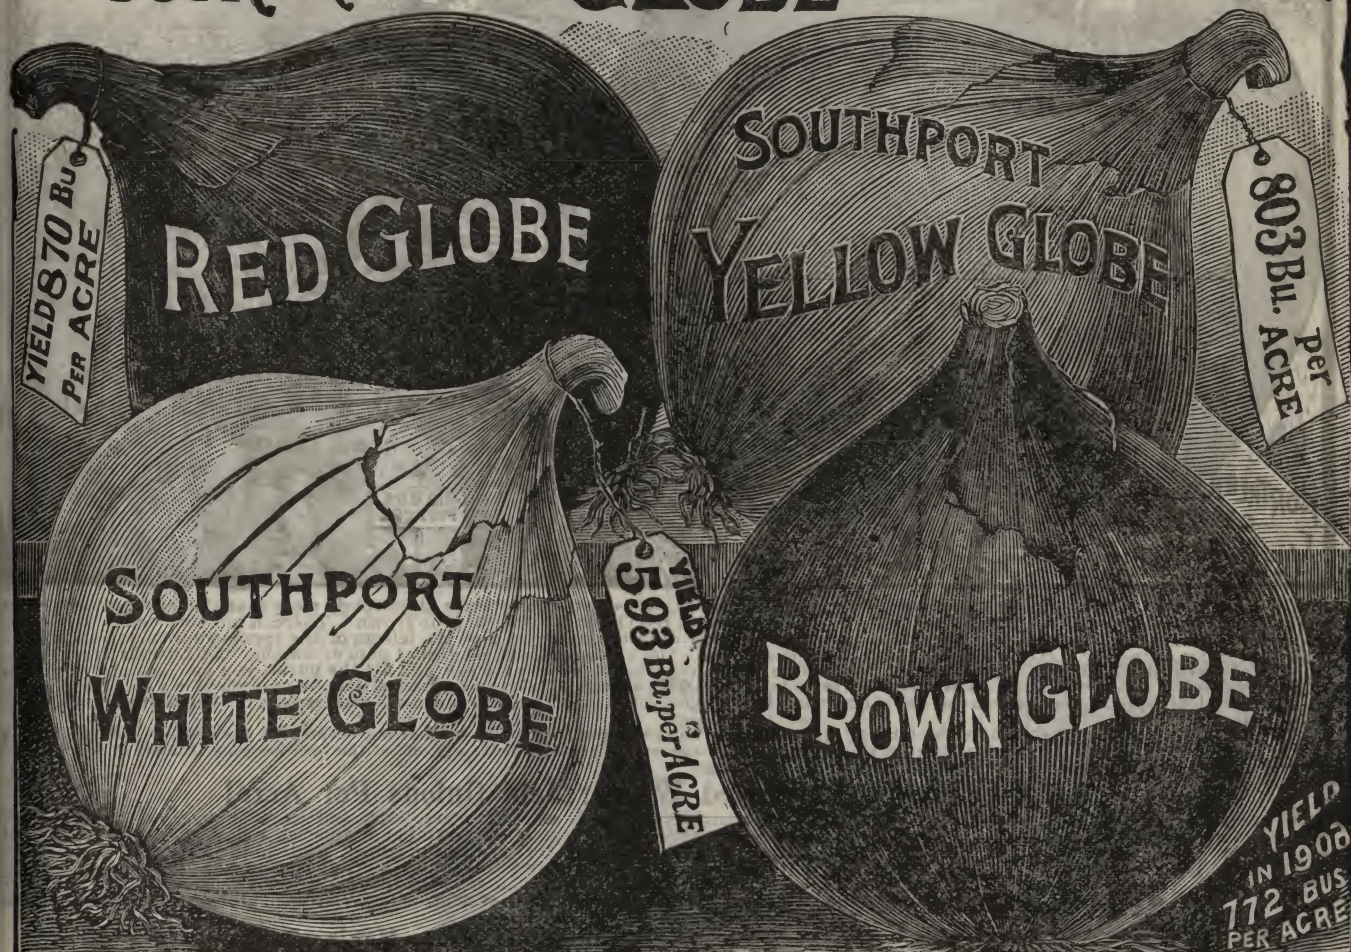 GLOBE
RED GLOBE
YIELD 870 Bu
PER ACRE
SOUTHPORT
YELLOW GLOBE
803 Bu. per
ACRE
SOUTHPORT
WHITE GLOBE
YIELD
593 Bu. per ACRE
BROWN GLOBE
YIELD
IN
772 BUS
PER ACRE